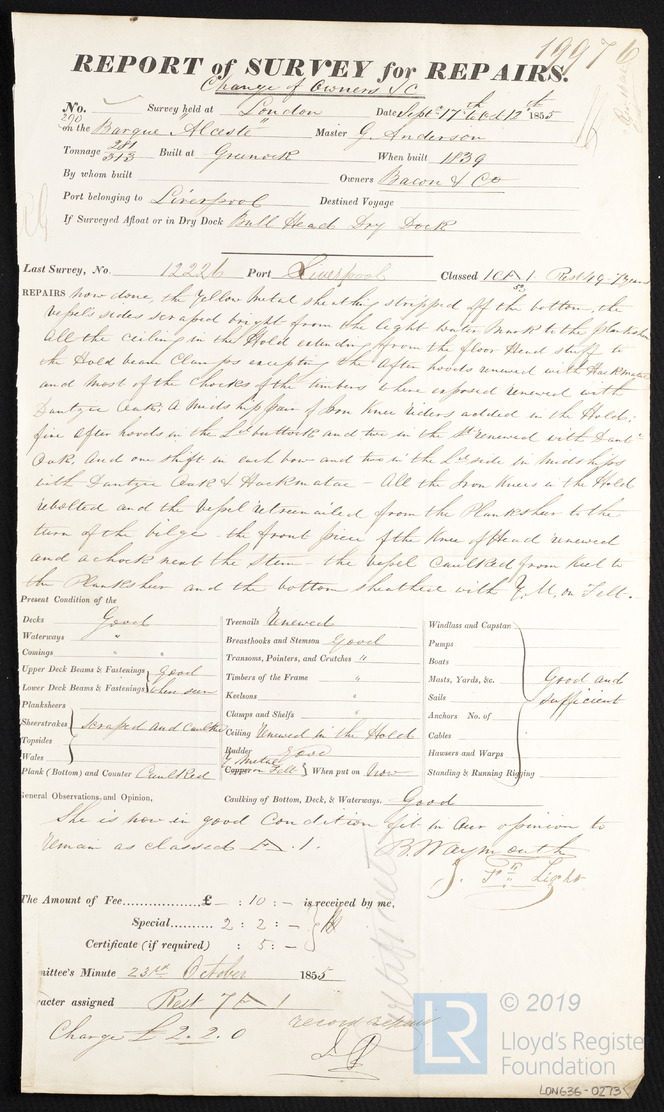 19976
REPORT of SURVEY for REPAIRS.
Change of Owners &C
No. 290 Survey held at London Date Septr 17th to Oct 12th 1855
on the Barque "Alceste" Master G. Anderson
Tonnage 281 313 Built at Greenock When built 1839
By whom built Owners Bacon & Co
Port belonging to Liverpool Destined Voyage
If Surveyed Afloat or in Dry Dock Bull Head Dry Dock
Last Survey, No. 12226 Port Liverpool Classed 10 A 1. Rest 49 - 7 years
REPAIRS now done, the Yellow Metal sheathing stripped off the bottom, the
vessel's sides scraped bright from the light water mark to the planksheer
All the ceiling in the Hold extending from the floor Head stuff to
the Hold beam Clamps excepting the after hoods renewed with Hackmatac
and most of the chocks of the timbers where exposed renewed with
Dantzic Oak, A Midship pair of Iron Knee riders added in the Hold;
five after hoods in the Ld buttock and two in the St renewed with Dantc
Oak, And one shift in each bow and two in the Ld side in Midships
with Dantzic Oak & Hackmatac - All the Iron Knees in the Hold
rebolted and the vessel retreenailed from the Planksheer to the
turn of the bilge - the front piece of the Knee of Head renewed
and a chock next the Stem - the vessel caulked from Keel to
the Planksheer and the bottom sheathed with Y.M. on Felt.
Present Condition of the
Decks Good
Waterways "
Comings " "
Upper Deck Beams & Fastenings Good
Lower Deck Beams & Fastenings where seen
Planksheers
Sheerstrakes scraped and caulked
Topsides
Wales
Plank (Bottom) and Counter Caulked
Treenails Renewed
Breasthooks and Stemson Good
Transoms, Pointers, and Crutches "
Timbers of the Frame "
Keelsons "
Clamps and Shelfs "
Ceiling Renewed in the Hold
Rudder Good
Y Metal
Copper on Felt When put on Now
Windlass and Capstan
Pumps
Boats
Masts, Yards, &c. Good and
Sails sufficient
Anchors No. of
Cables
Hawsers and Warps
Standing & Running Rigging
General Observations and Opinion, Caulking of Bottom, Deck, & Waterways. Good
She is now in good condition fit in our opinion to
remain as classed A 1. B. Waymouth
J. Light
The Amount of Fee £ - : 10 : - is received by me,
Special 2 : 2 : -
Certificate (if required) : 5 : -
Certificate
mittee's Minute 23rd October 1855
racter assigned Rest 7 A 1
Charge £ 2.2.0 record repair
© 2019
LR Lloyd's Registe
Foundation
LON636-0273